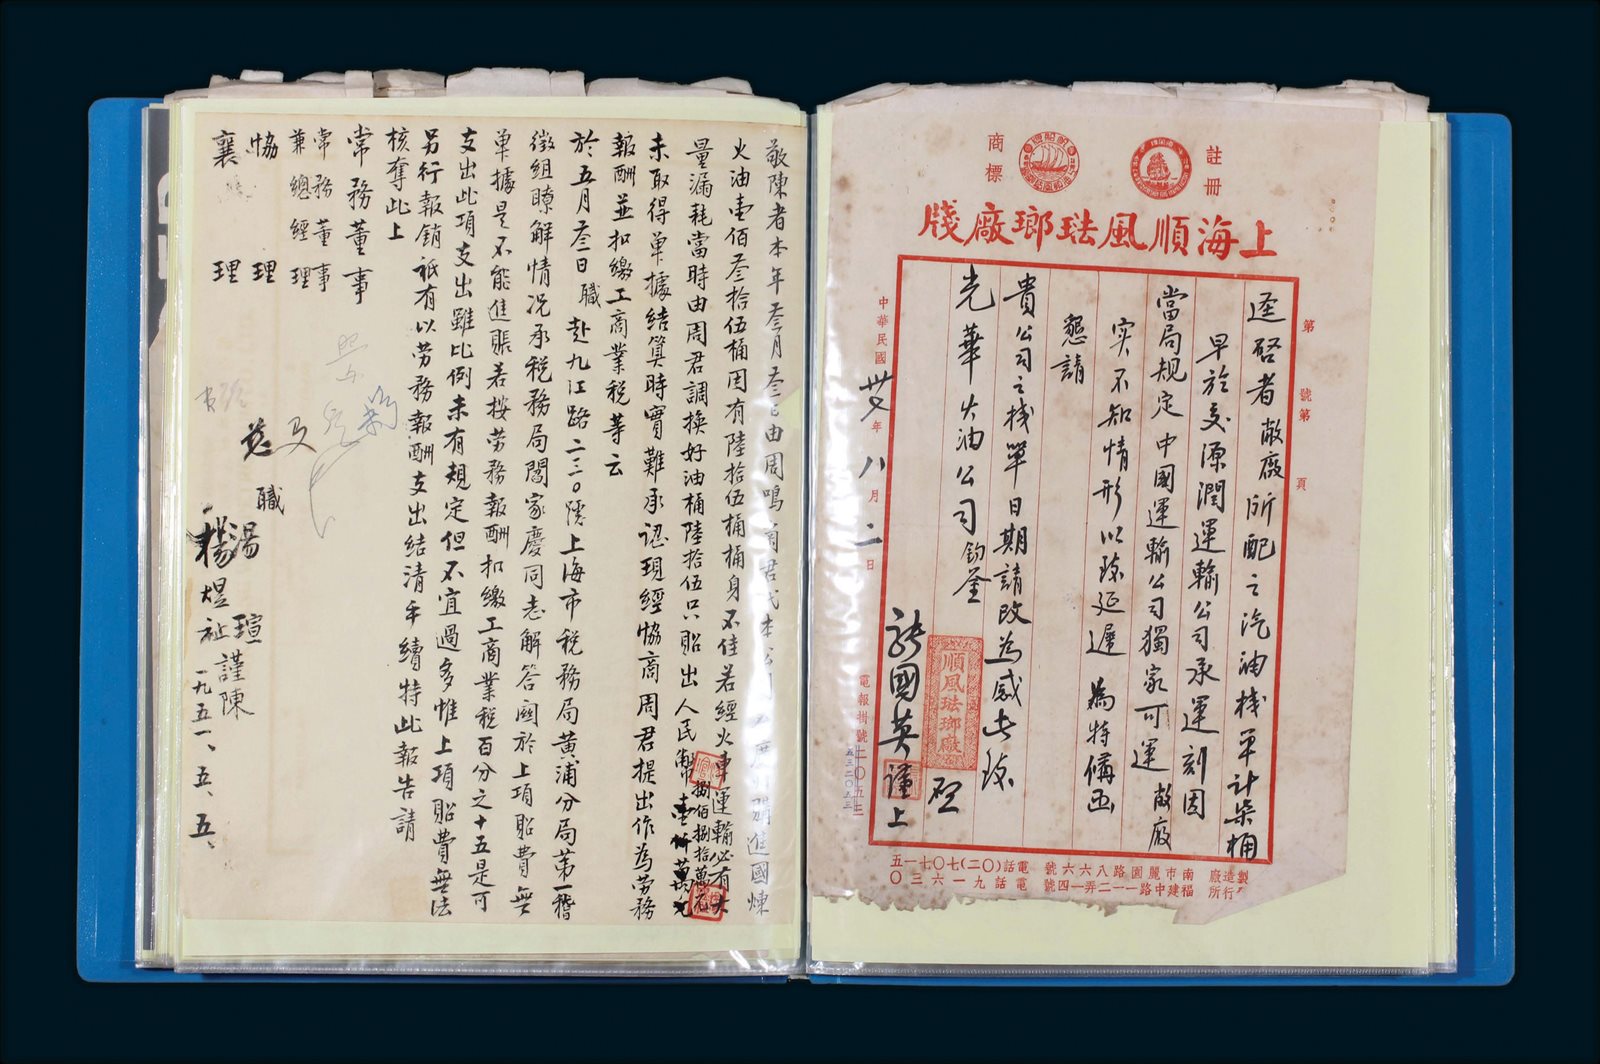 註冊
商標
上海順風琺瑯廠牋
第 號第 頁
逕啓者敝廠所配之汽油棧單計柒桶
早於交源潤運輸公司承運刻因
當局規定中國運輸公司獨家可運敝廠
實不知情形以致延遲為特備函
懇請
貴公司之棧單日期請改為感此致
光華火油公司鈞鉴
順風琺瑯廠
啟
國英謹上
中華民國卅 年八月二日
電報掛號二〇五三
五三二〇五三
製造廠 南市麗園路八六六號 電話(〇二)七〇七一五
行所 福建中路一一二弄一四號 電話九一六三〇
敬陳者本年叁月叁日由周鳴 君代本公司 購進國煉
火油壹佰叁拾伍桶因有陸拾伍桶桶身不佳若經火車運輸必有大
量漏耗當時由周君調換好油桶陸拾伍只貼出人民幣捌佰捌拾萬元
未取得单據結算時實難承認現經協商周君提出作為勞務
報酬並扣繳工商業税等云
於五月叁日職赴九江路二三〇號上海市税務局黄浦分局第一稽
徵組瞭解情况承税務局閻家慶同志解答關於上項貼費無
单據是不能進賬若按勞務報酬扣繳工商業税百分之十五是可
支出此項支出雖比例未有規定但不宜過多惟上項貼費無法
另行報銷祇有以勞務報酬支出結清手續特此報告請
核奪此上
常務董事
常務董事
兼總經理
協理
襄理
職
湯瑄謹陳
楊煜祉
一九五一、五、五、